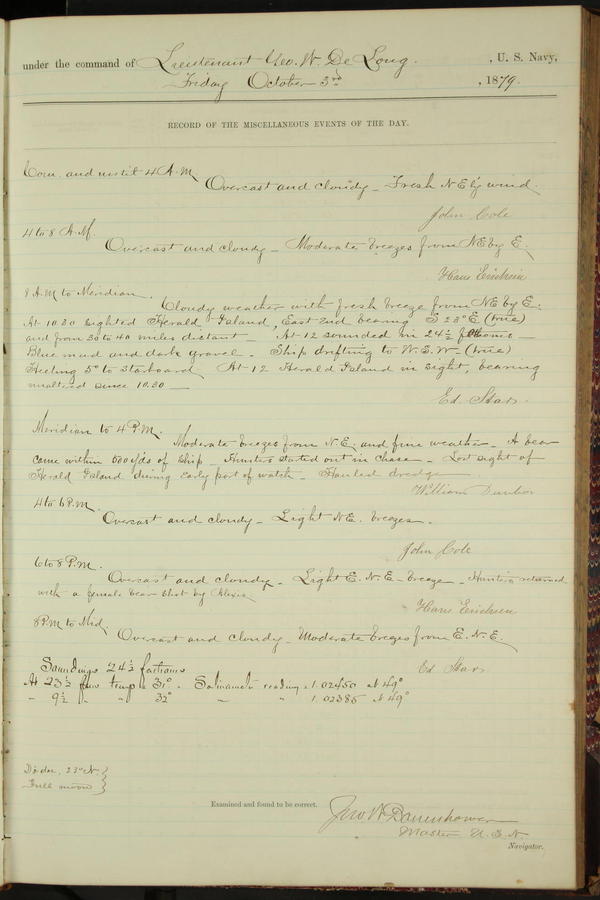 under the command of Lieutenant Geo. W. De Long. , U. S. Navy,
Friday October 3rd , 1879.
RECORD OF THE MISCELLANEOUS EVENTS OF THE DAY.
Com. and until 4 A.M.
Overcast and cloudy – Fresh N E'ly wind.
John Cole
4 to 8 A.M.
Overcast and cloudy – Moderate breezes from NE by E.
Hans Erichsen
8 A.M to Meridian.
Cloudy weather with fresh breeze from NE by E.
At 10.30 sighted Herald Island, East end bearing S 23° E (true)
and from 30 to 40 miles distant – At 12 sounded in 24½ fathoms –
Blue mud and dark gravel. – Ship drifting to W.S.W – (true)
Heeling 5° to starboard At 12 Herald Island in sight, bearing
unaltered since 10.30 –
Ed Starr.
Meridian to 4 P.M.
Moderate breezes from N.E. and fine weather – A bear
came within 500 yds of ship – Hunters started out in chase – Lost sight of
Herald Island during early part of watch – Hauled dredge
William Dunbar
4 to 6 P.M.
Overcast and cloudy – Light NE. breezes.
John Cole
6 to 8 P.M.
Overcast and cloudy – Light E. N. E – breeze – Hunters returned
with a female bear shot by Alexis
Hans Erichsen
8 P.M to Mid.
Overcast and cloudy – Moderate breezes from E. N. E.
Ed Starr
Soundings 24½ fathoms
At 23½ fms temp 31°. Salinometer reading 1.02450 at 49°
" 9½ " " 32° " " 1.02385 at 49°
23° N.
Full moon
Examined and found to be correct.
Jno W Danenhower
Master U.S.N.
Navigator.